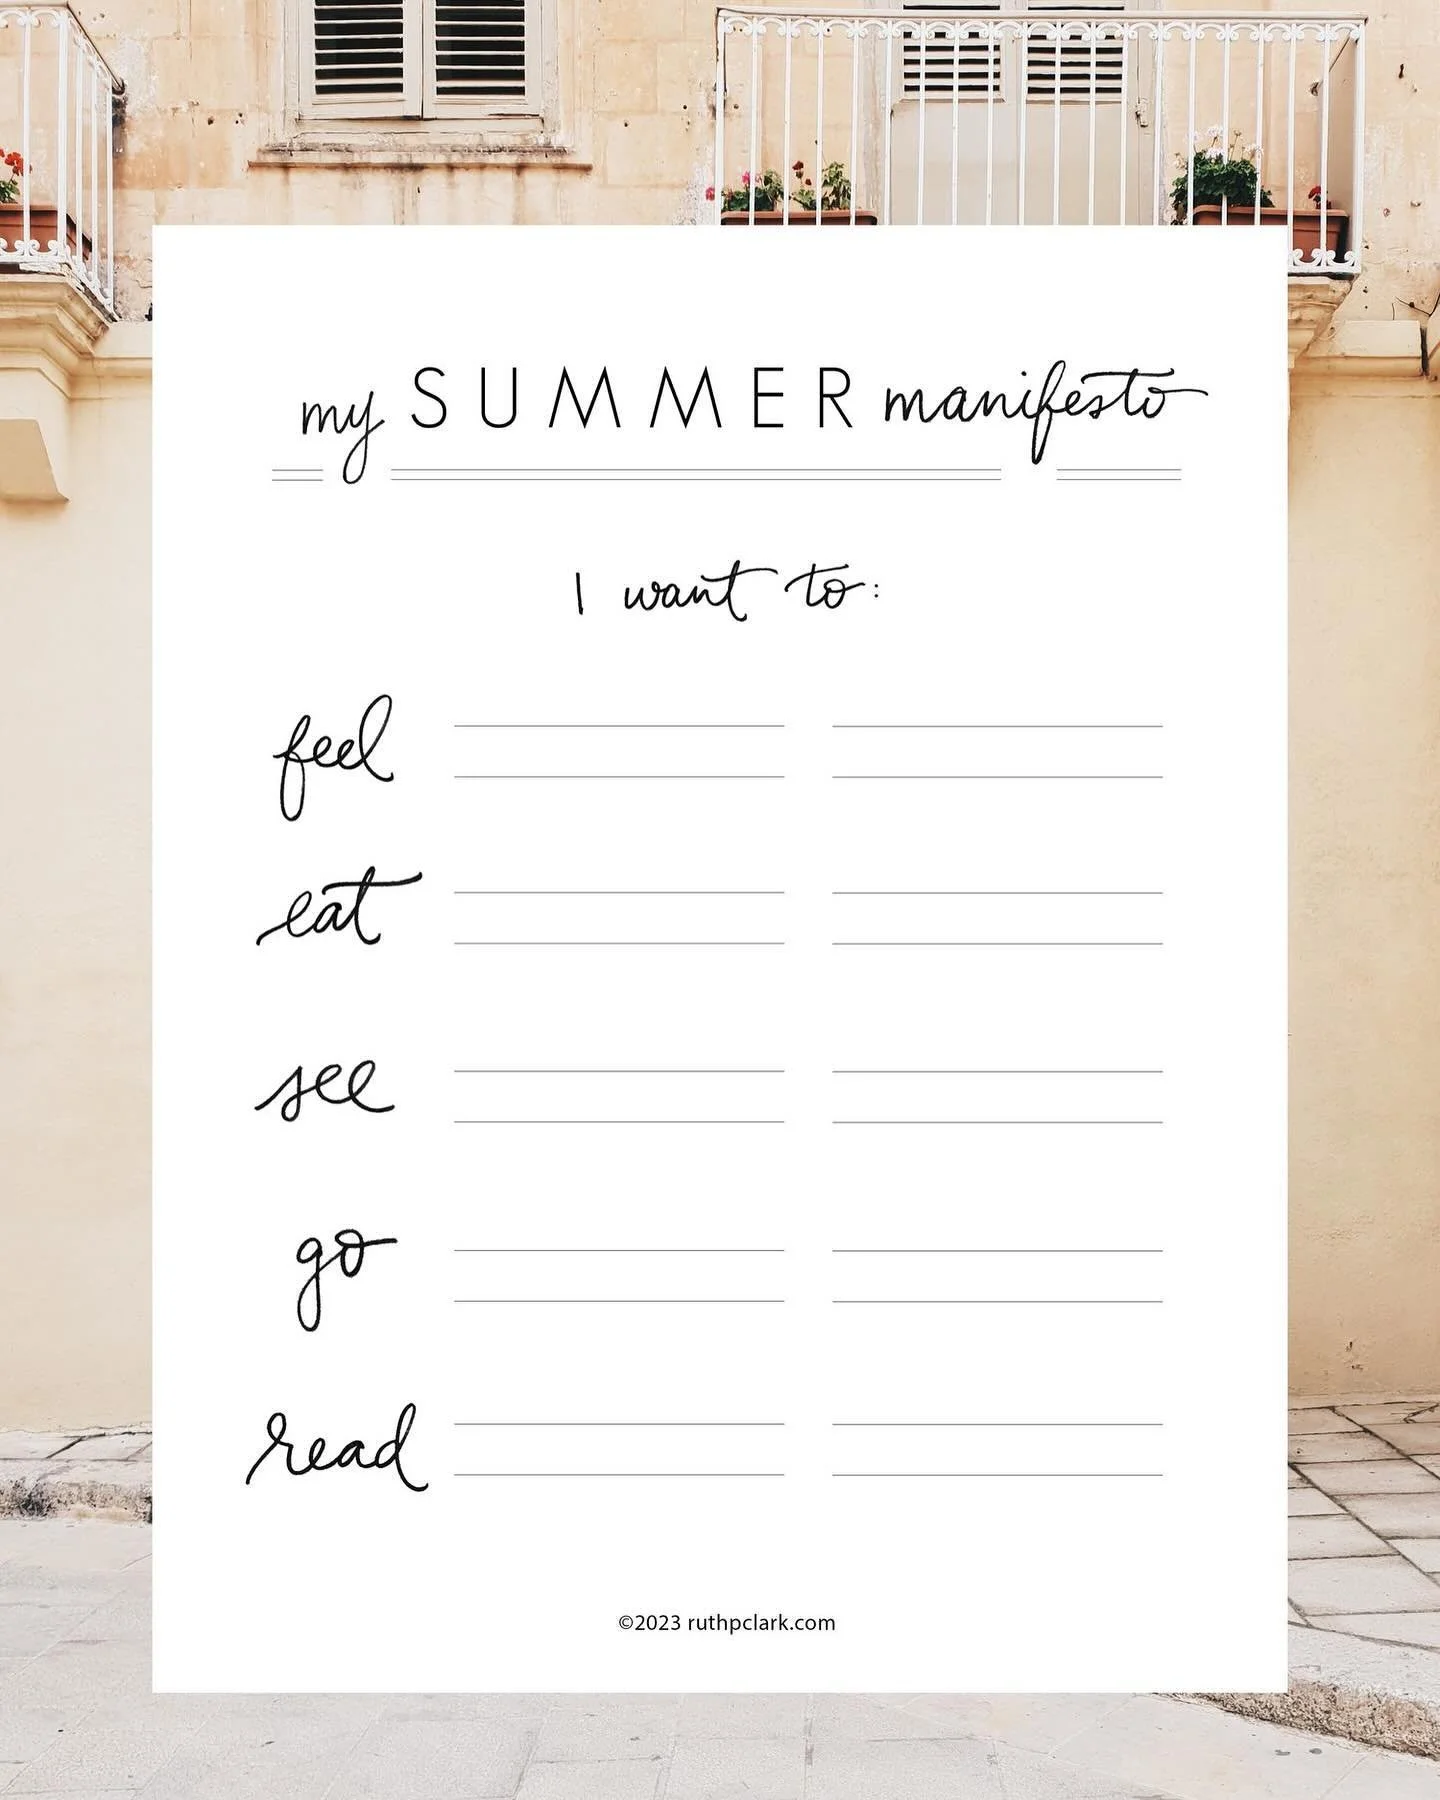 my SUMMER manifesto
I want to:
feel
eat
see
go
read
©2023 ruthpclark.com